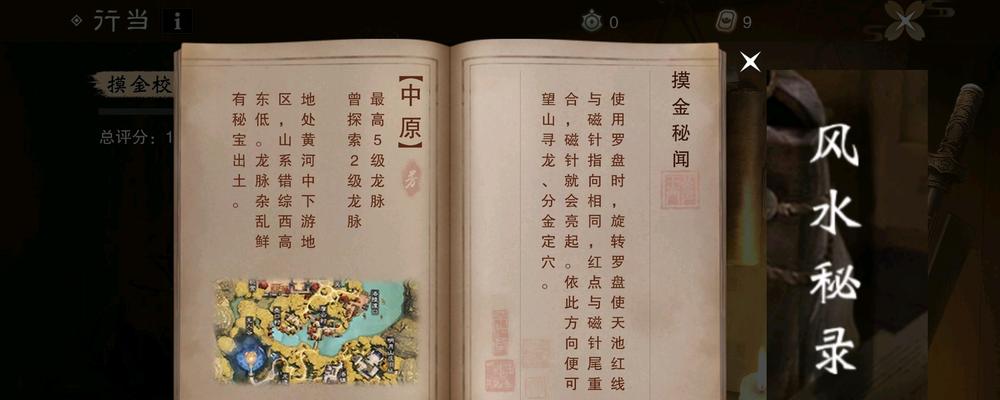 行当
0
9
摸金校
总评分：1
摸金秘闻
使用罗盘时，旋转罗盘使天池红线
与磁针指向相同，红点与磁针尾重
合，磁针就会亮起。依此方向便可
望山寻龙、分金定穴。
【中原】
最高5级龙脉
曾探索2级龙脉
地处黄河中下游地
区，山系错综西高
东低。龙脉杂乱鲜
有秘宝出土。
风水秘录